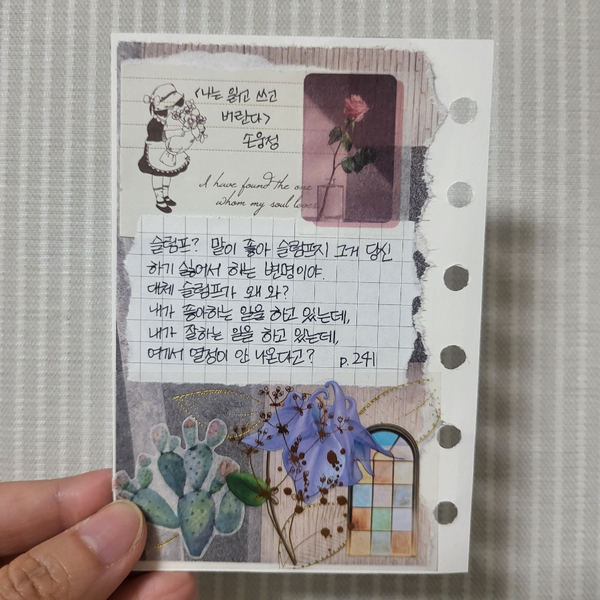 <나는 읽고 쓰고
버린다>
손웅정
I have found the one
whom my soul loves
슬럼프? 말이 좋아 슬럼프지 그거 당신
하기 싫어서 하는 변명이야.
대체 슬럼프가 왜 와?
내가 좋아하는 일을 하고 있는데,
내가 잘하는 일을 하고 있는데,
여기서 열정이 안 나온다고? p.241